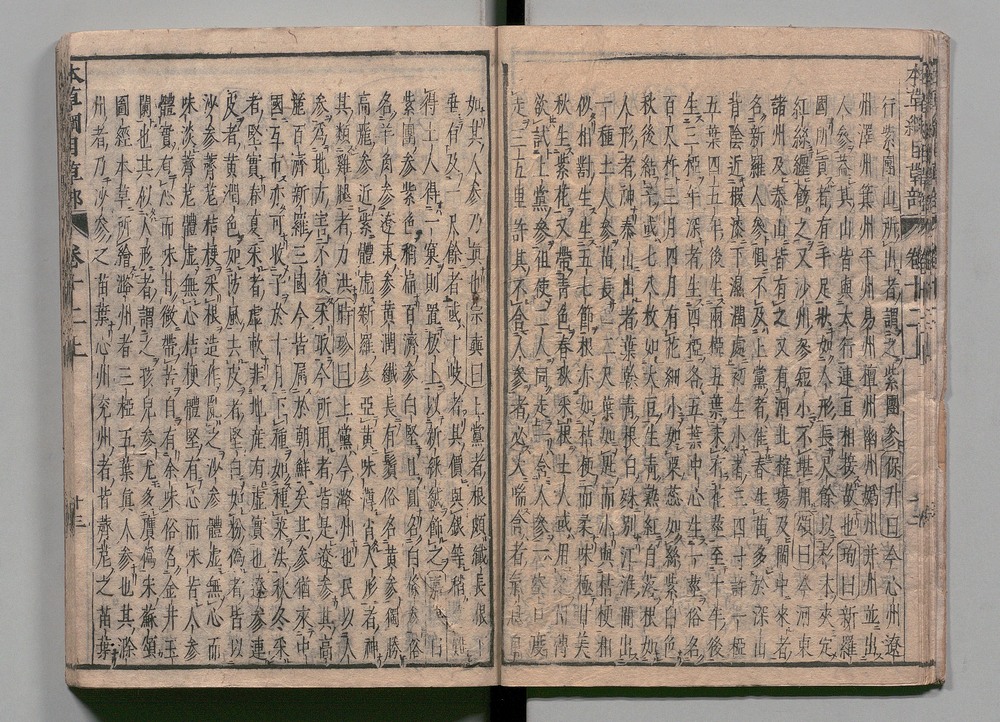 本草綱目草部 卷十二上
行紫團山所出者謂之紫團參保升曰今沁州遼
州澤州箕州平州易州檀州幽州嬀州并州並出
人參蓋其山皆與太行連亘相接故也珣曰新羅
國所貢者有手足狀如人形長尺餘以杉木夾定
紅絲纏飾之又沙州參短小不堪用頌曰今河東
諸州及泰山皆有之又有河北榷場及閩中來者
名新羅人參俱不及上黨者佳春生苗多於深山
背陰近椵漆下濕潤處初生小者三四寸許一椏
五葉四五年後生兩椏五葉未有花莖至十年後
生三椏年深者生四椏各五葉中心生一莖俗名
百尺杵三月四月有花細小如粟蕊如絲紫白色
秋後結子或七八枚如大豆生青熟紅自落根如
人形者神泰山出者葉榦青根白殊別江淮間出
一種土人參苗長一二尺葉如匙而小與桔梗相
似相對生生五七節根亦如桔梗而柔味極甘美
秋生紫花又帶青色春秋采根土人或用之相傳
欲試上黨參但使二人同走一含人參一空口度
走三五里許其不含人參者必大喘含者氣息自
如其人參乃真也宗奭曰上黨者根頗纖長根下
垂有及一尺餘者或十岐者其價與銀等稍難
得土人得一窠則置板上以新綵絨飾之嘉謨曰
紫團參紫色稍扁百濟參白堅且圓名白條參俗
名羊角參遼東參黃潤纖長有鬚俗名黃參獨勝
高麗參近紫體虛新羅參亞黃味薄肖人形者神
其類雞腿者力洪時珍曰上黨今潞州也民以人
參為地方害不復采取今所用者皆是遼參其高
麗百濟新羅三國今皆屬於朝鮮矣其參猶來中
國互市亦可收子於十月下種如種菜法秋冬采
者堅實春夏采者虛軟非地產有虛實也遼參連
皮者黃潤色如防風去皮者堅白如粉偽者皆以
沙參薺苨桔梗采根造作亂之沙參體虛無心而
味淡薺苨體虛無心桔梗體堅有心而味苦人參
體實有心而味甘微帶苦自有余味俗名金井玉
闌也其似人形者謂之孩兒參尤多贗偽宋蘇頌
圖經本草所繪潞州者三椏五葉真人參也其滁
州者乃沙參之苗葉沁州兗州者皆薺苨之苗葉
本草綱目草部 卷十二上 廿三